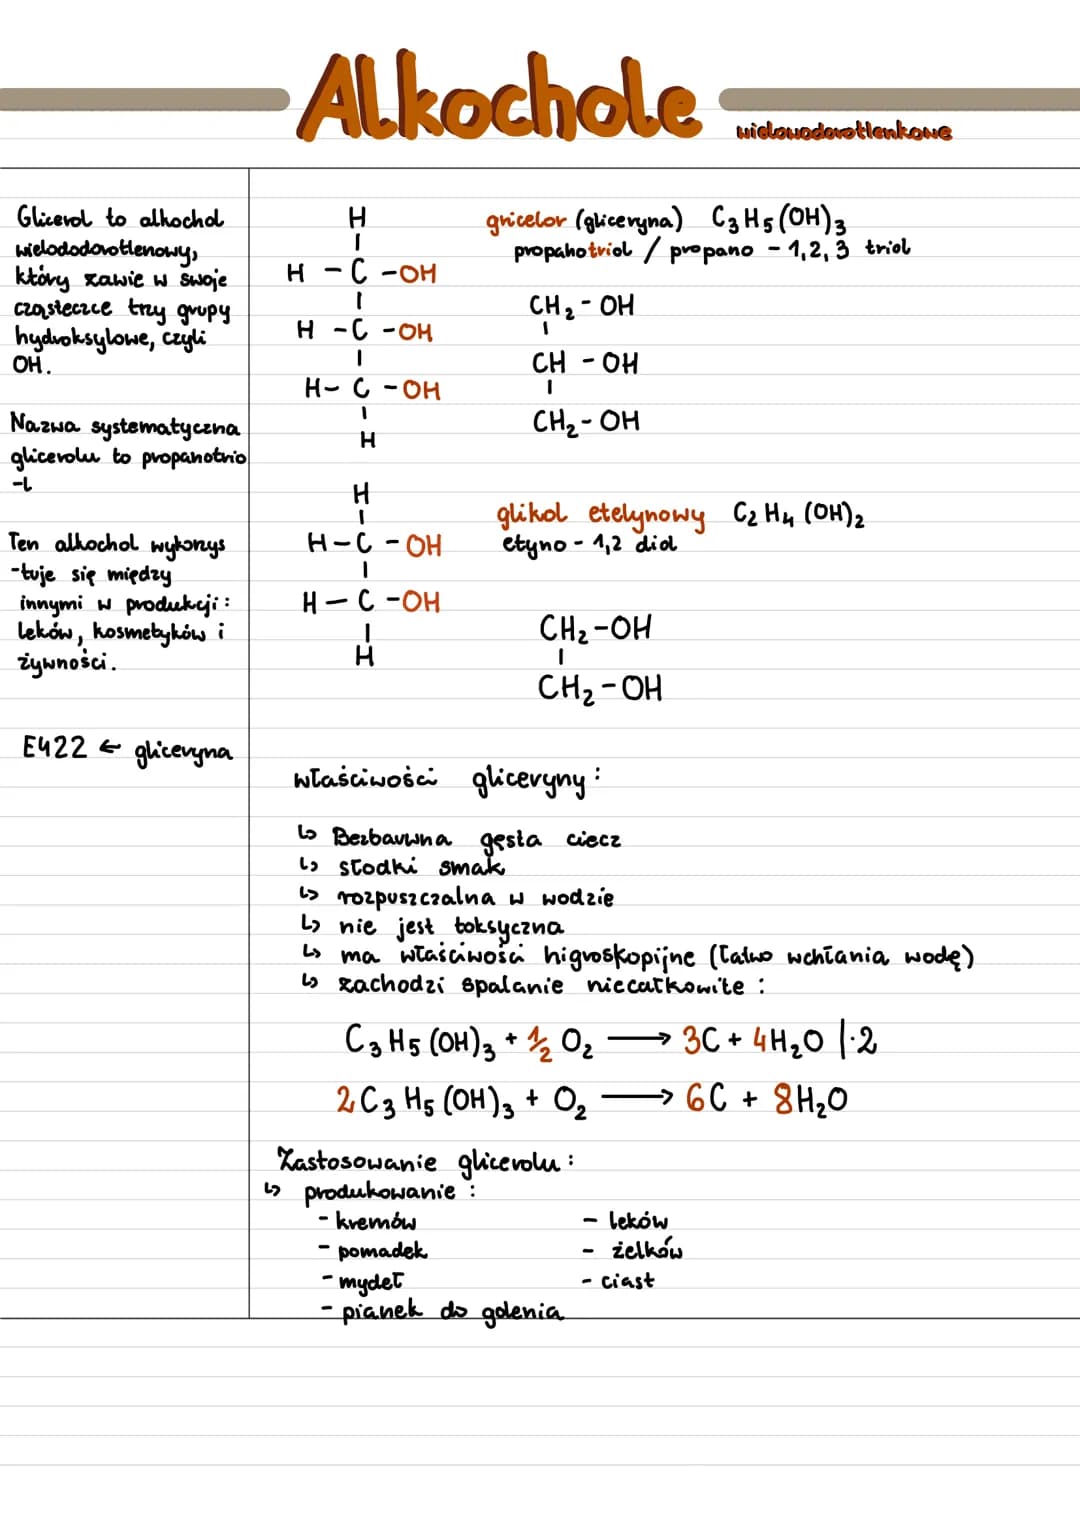 Alkochole
wielowodorotlenkowe
Glicerol to alkochol
wielododorotlenowy,
który zawie w swoje
cząsteczce trzy grupy
hydroksylowe, czyli
OH.
Nazwa systematyczna
glicerolu to propanotrio
-l
Ten alkochol wykorzys
-tuje się między
innymi w produkcji:
leków, kosmetyków i
żywności.
E422 ← gliceryna
H
H - C - OH
H - C - OH
H - C - OH
H
gricelor (gliceryna) C3H5(OH)3
propanotriol / propano - 1,2,3 triol
CH2 - OH
CH - OH
CH2 - OH
H
H - C - OH
H - C - OH
H
glikol etelynowy C2H4(OH)2
etyno - 1,2 diol
CH2 - OH
CH2 - OH
właściwości gliceryny:
↳ Bezbarwna gęsta ciecz
↳ słodki smak
↳ rozpuszczalna w wodzie
↳ nie jest toksyczna
↳ ma właściwości higroskopijne (łatwo wchłania wodę)
↳ zachodzi spalanie niecałkowite:
C3H5(OH)3 + 1/2 O2 → 3C + 4H2O |·2
2C3H5(OH)3 + O2 → 6C + 8H2O
Zastosowanie glicerolu:
↳ produkowanie:
- kremów
- pomadek
- mydeł
- pianek do golenia
- leków
- żelków
- ciast